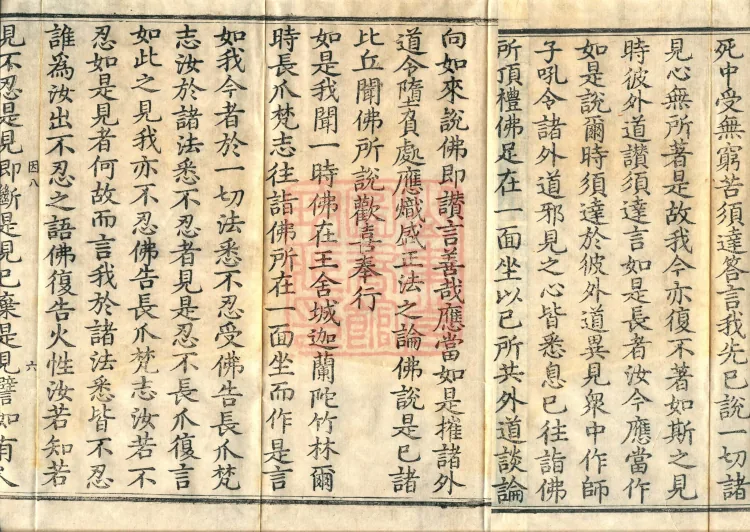 死中受無窮苦須達荅言我先已說一切諸
見心無所著是故我今亦復不著如斯之見
時彼外道讚須達言如是長者汝今應當作
如是說爾時須達於彼外道異見衆中作師
子吼令諸外道邪見之心皆悉息已往詣佛
所頂禮佛足在一面坐以已所共外道談論
向如來說佛即讚言善哉應當如是摧諸外
道令墮負處應熾盛正法之論佛說是已諸
比丘聞佛所說歡喜奉行
如是我聞一時佛在王舍城迦蘭陀竹林爾
時長爪梵志往詣佛所在一面坐而作是言
如我今者於一切法悉不忍受佛告長爪梵
志汝於諸法悉不忍者見是忍不長爪復言
如此之見我亦不忍佛告長爪梵志汝若不
忍如是見者何故而言我於諸法悉皆不忍
誰為汝出不忍之語佛復告火性汝若知若
因八 六
見不忍是見即斷是見已棄是見譬如有人